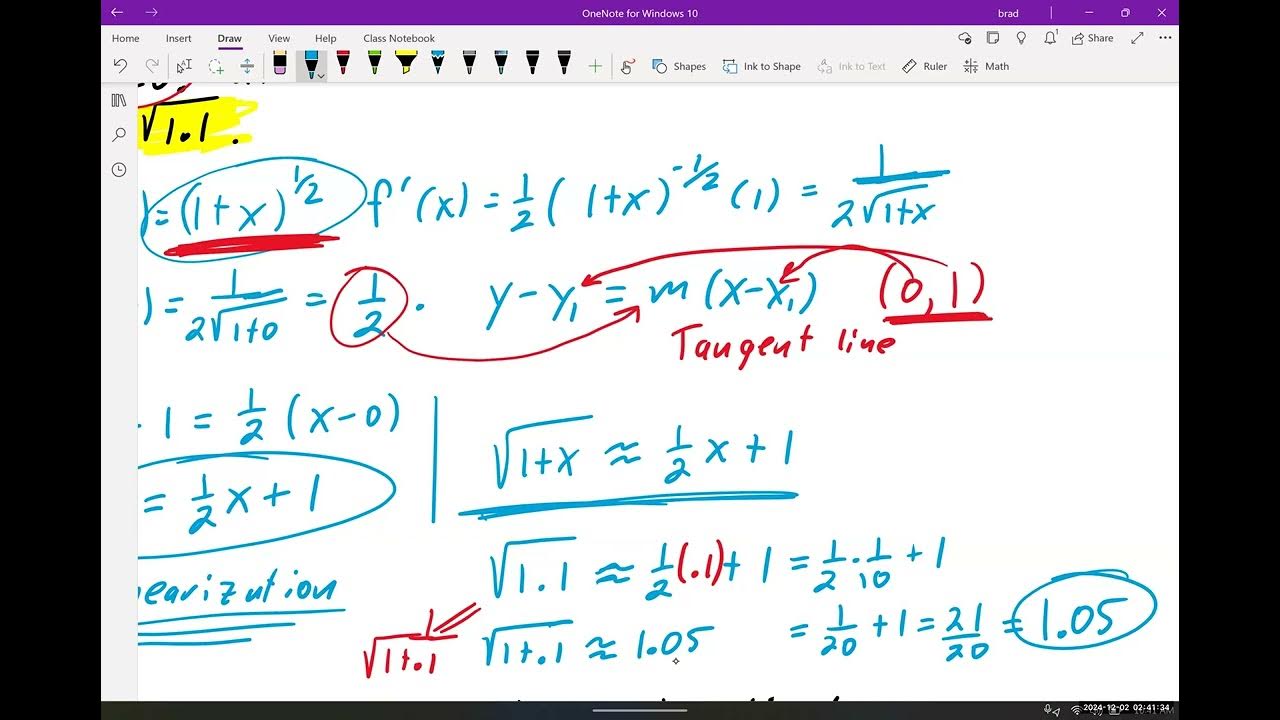 OneNote for Windows 10
brad
Home Insert Draw View Help Class Notebook
Share
Shapes Ink to Shape Ink to Text Ruler Math
√1.1 .
) = (1+x)^1/2 f'(x) = 1/2 (1+x)^-1/2 (1) = 1/2√1+x
) = 1/2√1+0 = 1/2 . y - y₁ = m (x - x₁) (0,1)
Tangent line
- 1 = 1/2 (x-0)
√1+x ≈ 1/2 x + 1
= 1/2 x + 1
√1.1 ≈ 1/2 (.1) + 1 = 1/2 · 1/10 + 1
earization
= 1/20 + 1 = 21/20 = 1.05
√1+.1 √1+.1 ≈ 1.05
2024-12-02 02:41:34